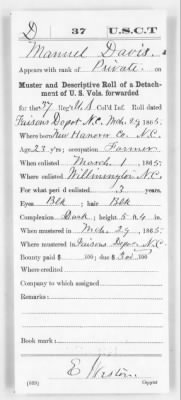 D 37 U.S.C.T
Manuel Davis
Appears with rank of Private on
Muster and Descriptive Roll of a Detach-
ment of U. S. Vols. forwarded
for the 37 Reg't U.S. Col'd Inf. Roll dated
Faisons Depot N.C. Mch. 29, 1865.
Where born New Hanover Co. N.C.
Age 23 y'rs; occupation Farmer
When enlisted March 1, 1865.
Where enlisted Willmington N.C.
For what period enlisted 3 years.
Eyes Blk; hair Blk
Complexion Dark; height 5 ft. 4 in.
When mustered in Mch. 29, 1865.
Where mustered in Faisons Depot N.C.
Bounty paid $ 100; due $ 300 100
Where credited
Company to which assigned
Remarks:
Book mark:
E Weston
(339) Copyist